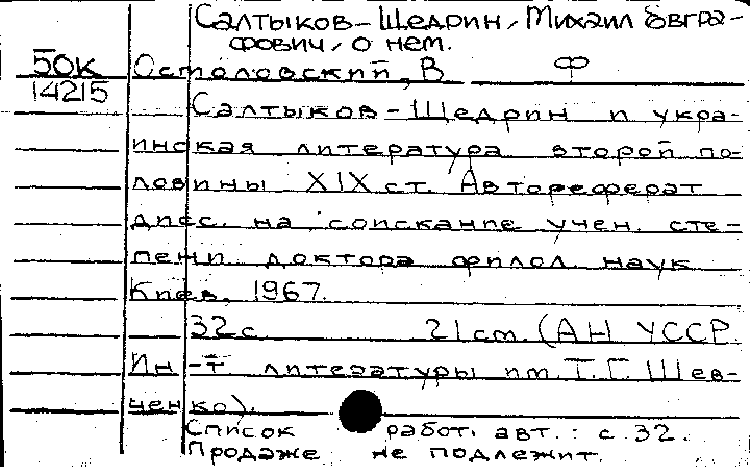 Салтыков-Щедрин, Михаил Евгра-
фович, о нем.
50К Остоловский, В Ф
14215
Салтыков-Щедрин и укра-
инская литература второй по-
ловины XIX ст. Автореферат
дисс. на соискание учен. сте-
пени доктора филол. наук
Киев, 1967.
32 с. 21 см. (АН УССР.
Ин-т литературы им. Т.Г. Шев-
ченко).
Список работ. авт.: с. 32.
Продаже не подлежит.